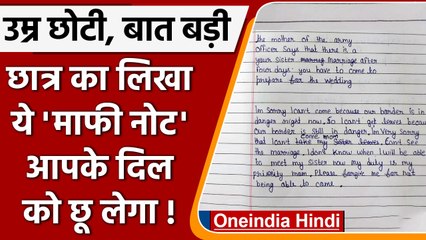 उम्र छोटी, बात बड़ी
छात्र का लिखा
ये 'माफी नोट'
आपके दिल
को छू लेगा !
the mother of the army
officer says that there is a
your sister marriage after
four days you have to come to
prepare for the wedding
Im Sorry I can't come because our barder is in
danger night now. So I can't get leaves because
our barder is still in danger. Im Very Sorry
come mom
that I can't take my Sister leaves. Can't see
the marriage. I don't know when I will be able
to meet my sister now my duty is my
priority mam. Please forgive me for not
being able to come.
Oneindia Hindi